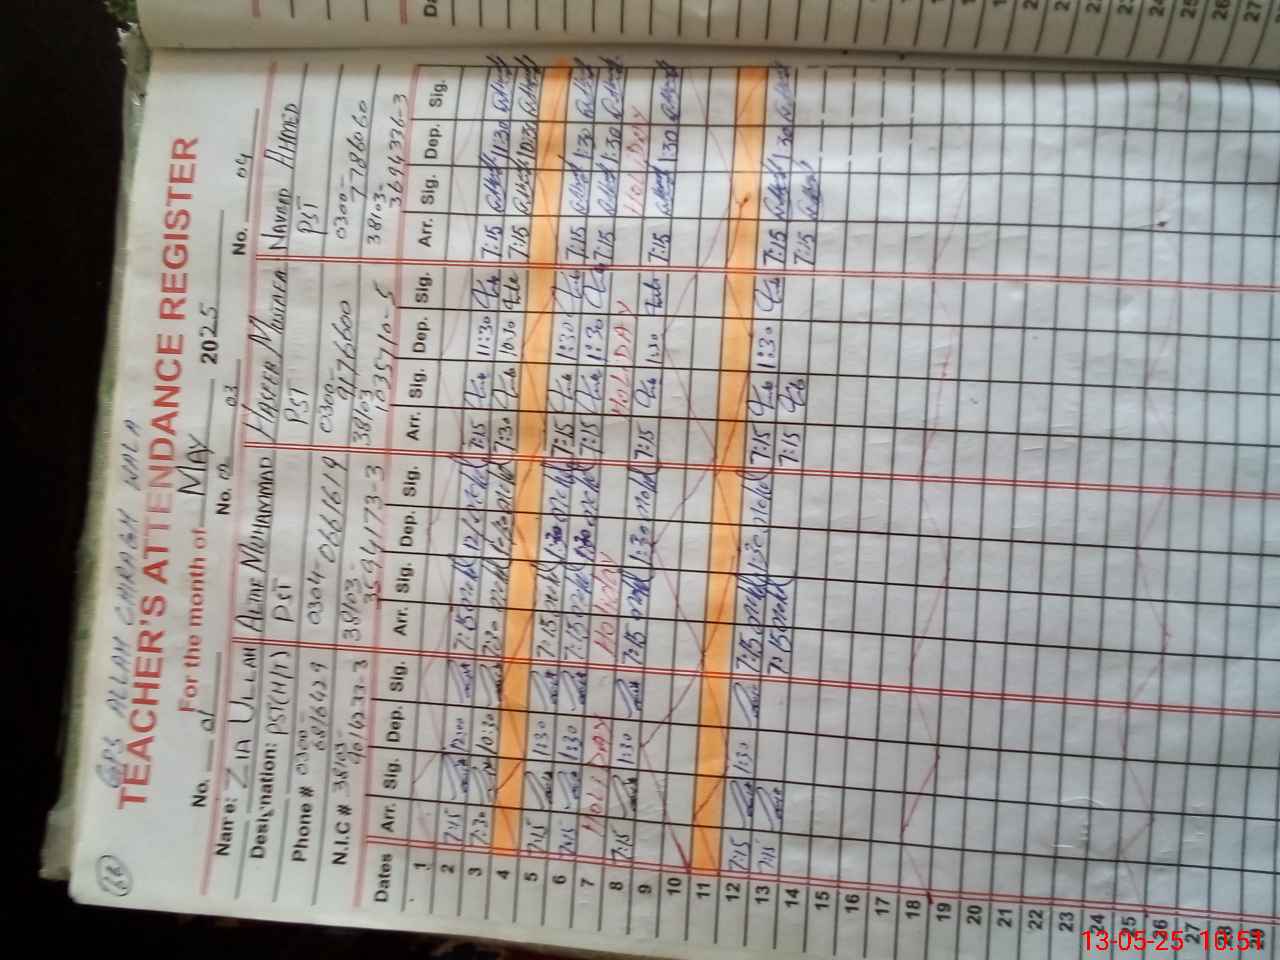 GPS ALLAH CHIRAGH WALA
TEACHER'S ATTENDANCE REGISTER
For the month of MAY 2025
No. 01 No. 02 03 No. 04
Name: ZIA ULLAH ALTAF MUHAMMAD HASEEB MUNEER NAVEED AHMED
Designation: PST(H/T) PST PST PST
Phone # 0300- 6816429 0304-0661619 0300- 9176600 0300- 7786060
N.I.C # 38103- 38103- 38103 38103-
Dates Arr. Sig. Dep. Sig. Arr. Sig. Dep. Sig. Arr. Sig. Dep. Sig. Arr. Sig. Dep. Sig.
1
2 7:15 12:00 7:15 12/ 7:15 11:30 7:15 11:30
3 7:30 10:30 7:30 7:30 10:30 7:15 10:30
4
5 7:15 1:30 7:15 1:30 7:15 1:30 7:15 1:30
6 7:15 1:30 7:15 1:30 7:15 1:30 7:15 1:30
7 HOLIDAY HOLIDAY HOLIDAY HOLIDAY
8 7:15 1:30 7:15 1:30 7:15 1:30 7:15 1:30
9
10
11
12 7:15 1:30 7:15 1:30 7:15 1:30 7:15 1:30
13 7:15 7:15 7:15 7:15
14
15
16
17
18
19
20
21
22
23
24
25
26
27
28
29
13-05-25 10:51